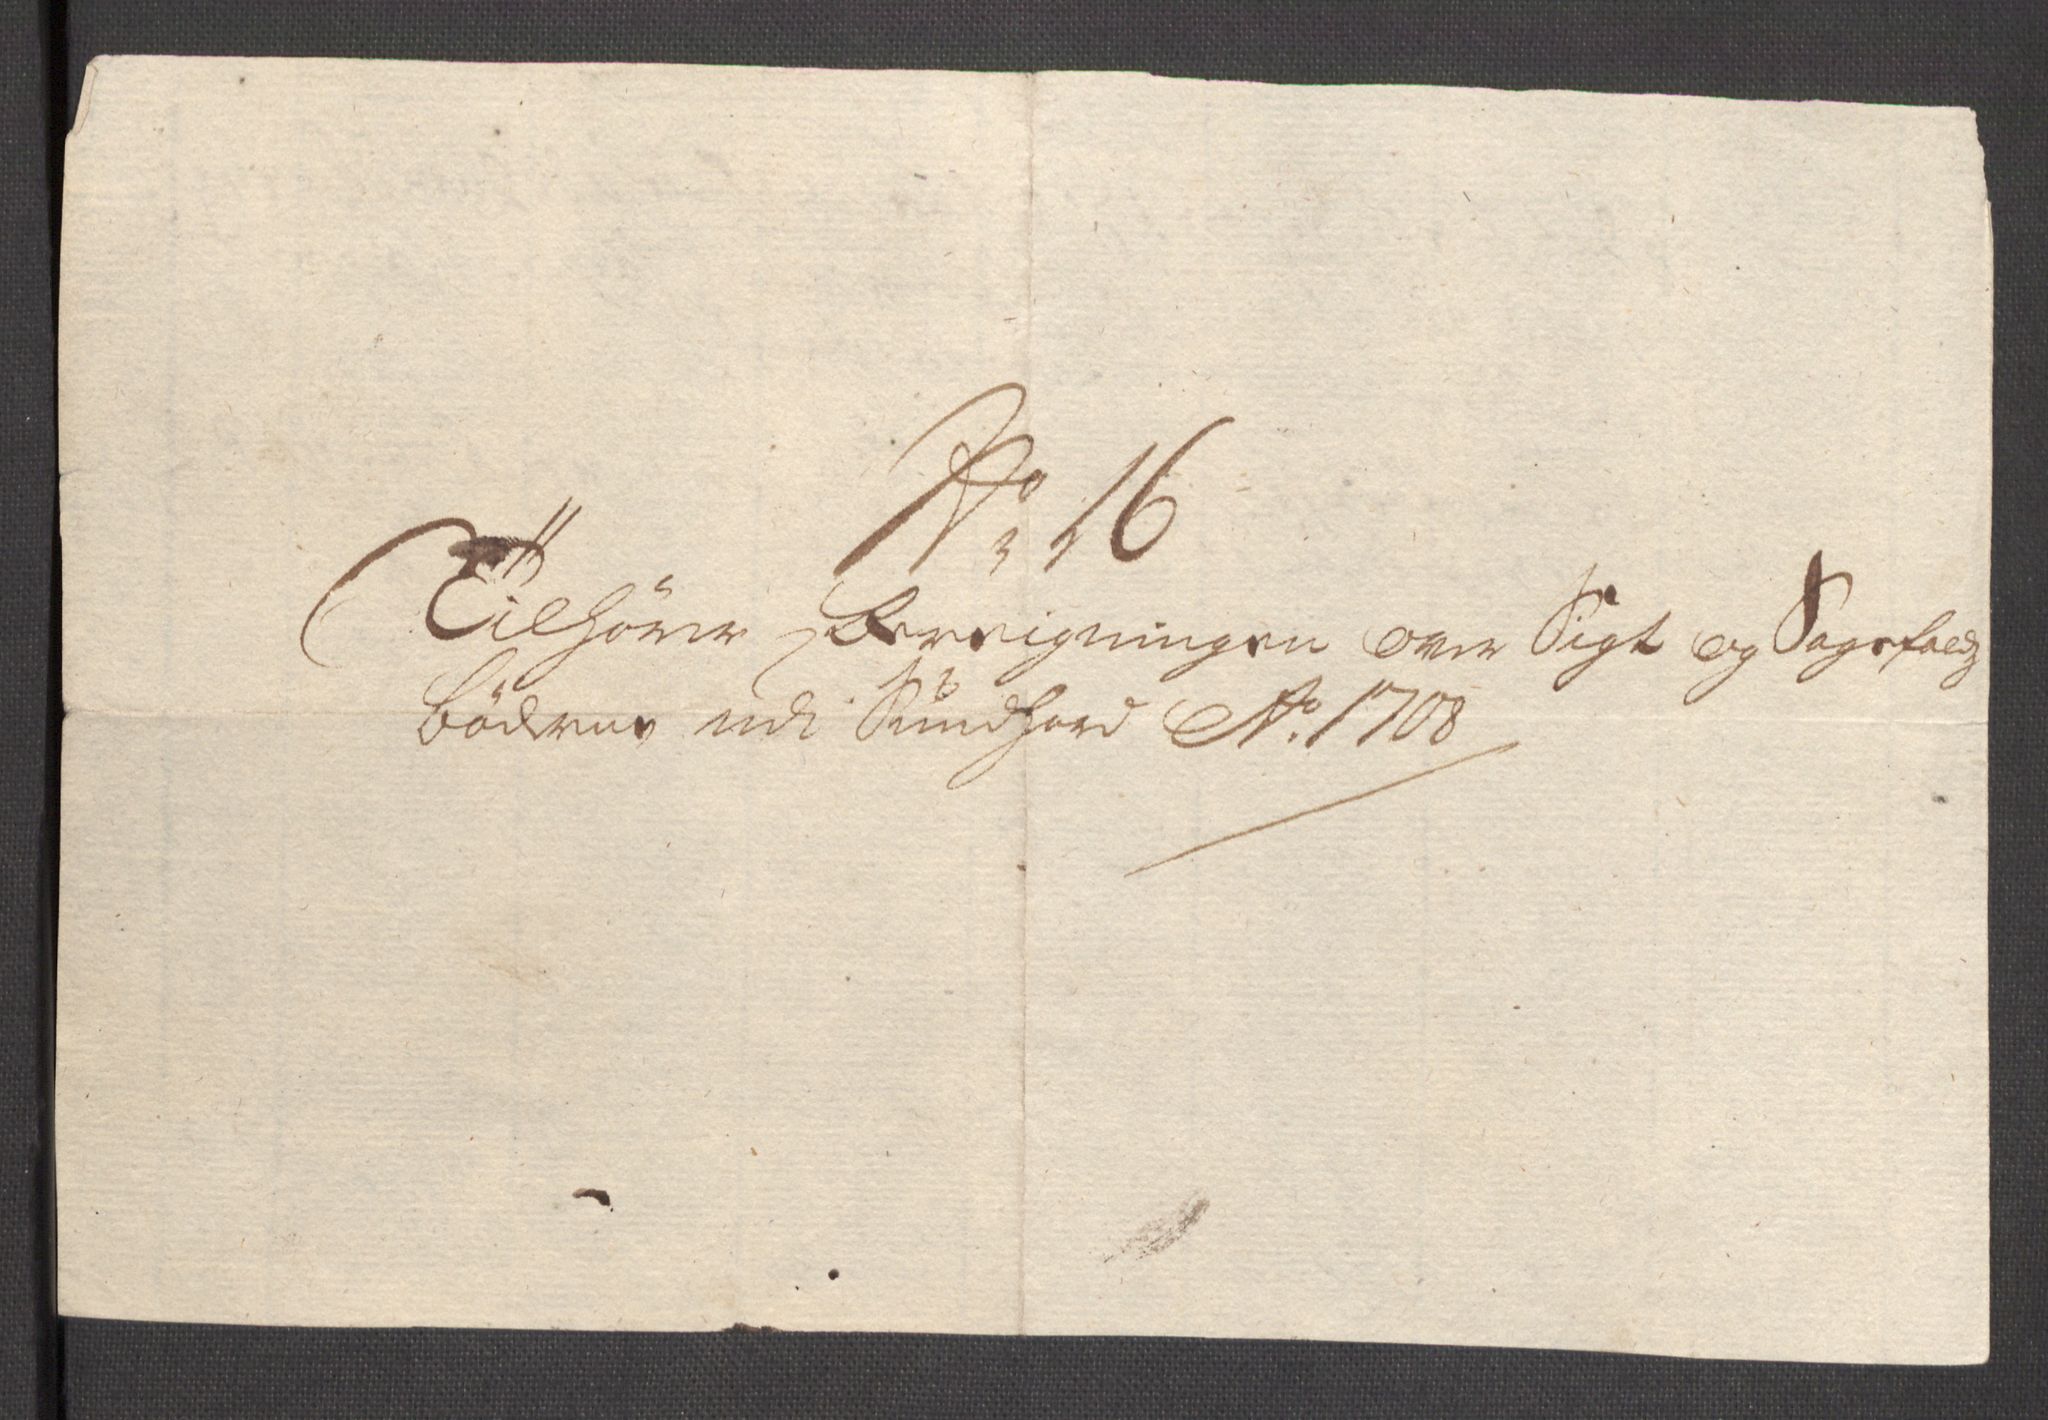 No. 16
Tilhörer Berregningen over Sigt og Sagefalds
bödernes udi Sundhord Ao. 1708